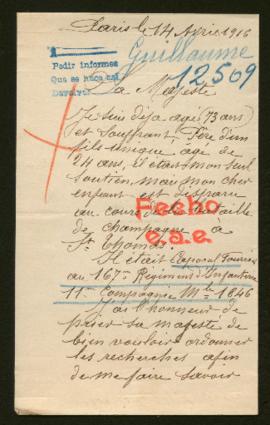 Paris le 14 Avril 1916
Guillaume
12569
Pedir informes
Que se haga así
Devolver
Sa Majesté
Je suis déjà agé (73 ans)
et souffrant, Père d'un
fils unique, agé de
24 ans, il était mon seul
soutien, mais mon cher
enfant est disparu
au cours de la bataille
de champagne à
St Thomas.
Fecho
Il était Caporal Fourrier
au 167e Régiment d'Infanterie
11e Compagnie Mle 1846
J'ai l'honneur de
prier sa majesté de
bien vouloir ordonner
les recherches afin
de me faire savoir